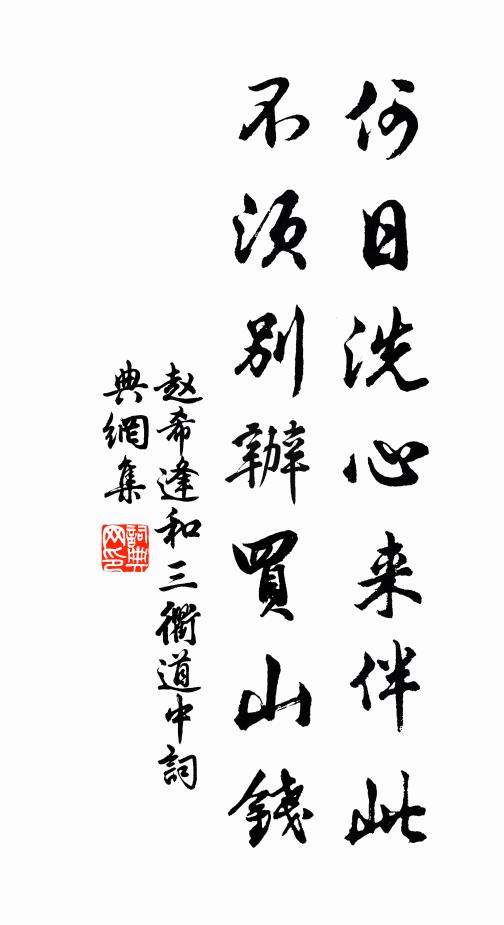 何日洗心来伴此
不须别辦買山錢
赵希逢和三衢道中詞
典網集
詞典
网印